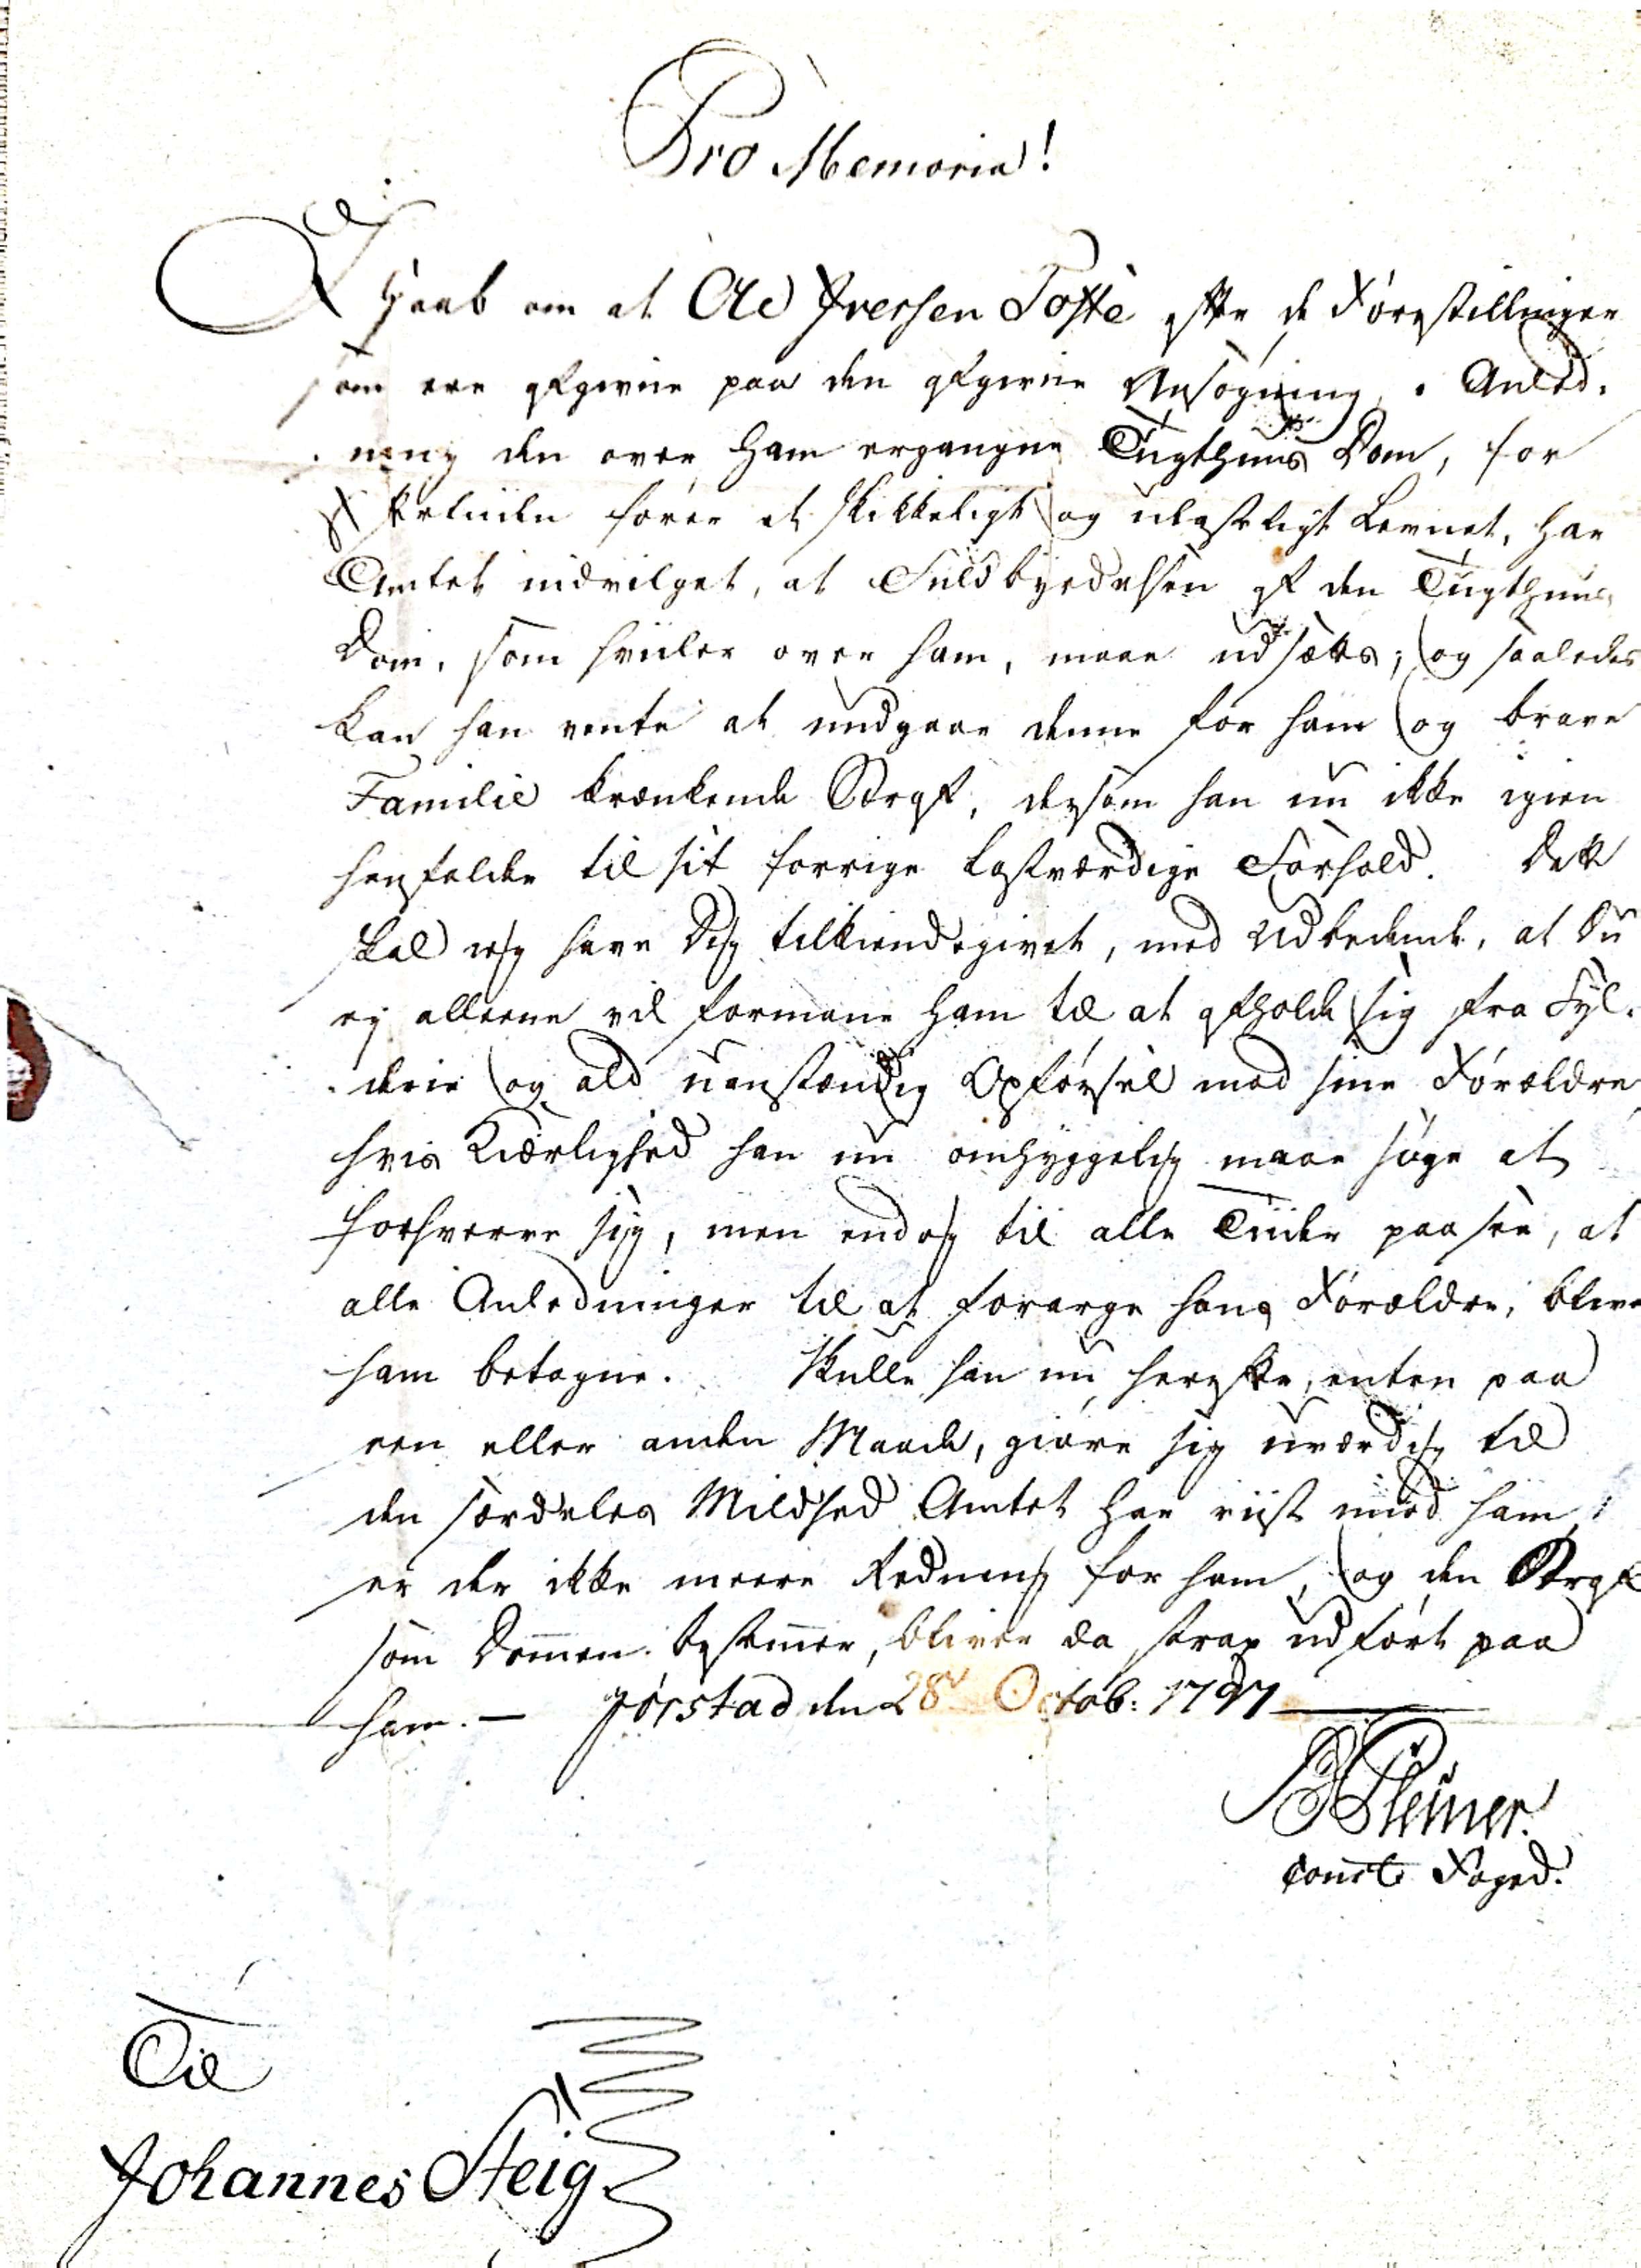 Pro Memoria!
I Haab om at Ole Iversen Tofte efter de Forestillinger
som ere afgivne paa den afgivne Ansøgning i Anled-
-ning den over ham ergangne Tugthuus Dom, for
Eftertiden fører et skikkeligt og ulasteligt Levnet, har
Amtet indvilget, at Fuldbyrdelsen af den Tugthuus
Dom, som hviler over ham, maae udsættes; og saaledes
kan han vente at undgaae denne for ham og brave
Familie krænkende Straf, dersom han nu ikke igien
henfalder til sit forrige lastværdige Forhold. Dette
skal ieg have Dig tilkiendegivet, med Udbedende, at Du
ej alleene vil formane ham til at afholde sig fra Fyl-
-derie og ald uanstændig Opførsel mod sine Forældre
hvis Kiærlighed han nu omhyggelig maae søge at
forhverve sig, men endog til alle Tider paasee, at
alle Anledninger til at forarge hans Forældre, blive
ham betagne. Skulle han nu herefter, enten paa
een eller anden Maade, giøre sig uværdig til
den særdeles Mildhed Amtet har viist mod ham,
er der ikke meere Redning for ham, og den Straf
som Dommen bestemmer, bliver da strax udført paa
ham. — Jørstad den 28de Octob: 1797
const: Foged.
Til
Johannes Steig